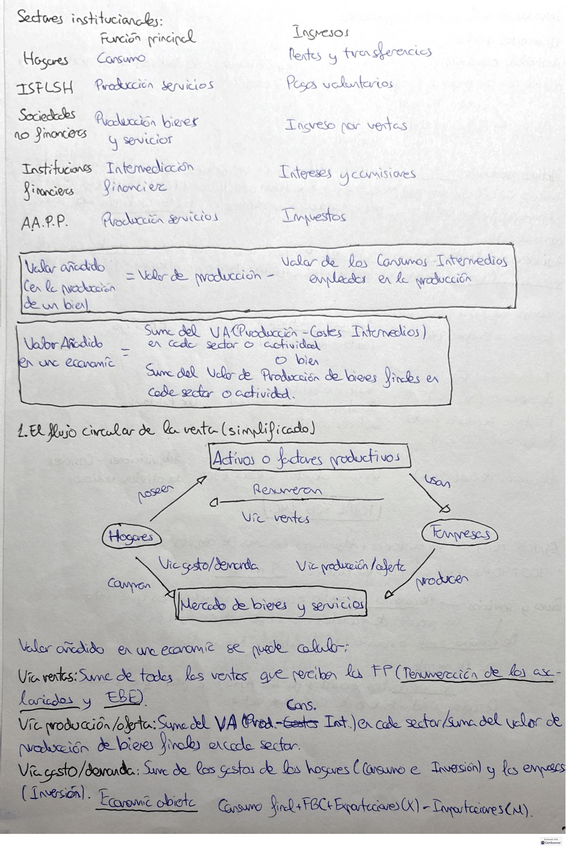 Sectores institucionales:
Función principal Ingresos
Hogares Consumo Rentas y transferencias
ISFLSH Producción servicios Pagos voluntarios
Sociedades no financiers Producción bienes y servicios Ingreso por ventas
Instituciones financiers Intermediación financiera Intereses y comisiones
AA.P.P. Producción servicios Impuestos
Valor añadido (en la producción de un bien) = Valor de producción - Valor de los Consumos Intermedios empleados en la producción
Valor Añadido en una economía = Suma del VA (Producción - Costes Intermedios) en cada sector o actividad
o bien
Suma del Valor de Producción de bienes finales en cada sector o actividad.
1. El flujo circular de la venta (simplificado)
Activos o factores productivos
poseen Remuneran usan
Vía ventas
Hogares Empresas
Vía gasto/demanda Vía producción/oferta
compran producen
Mercado de bienes y servicios
Valor añadido en una economía se puede calcular:
Vía ventas: Suma de todas las ventas que perciben los FP (Remuneración de los asa-
lariados y EBE).
Cons.
Vía producción/oferta: Suma del VA (Prod. - Costes Int.) en cada sector/suma del valor de
producción de bienes finales en cada sector.
Vía gasto/demanda: Suma de los gastos de los hogares (Consumo e Inversión) y las empresas
(Inversión). Economía abierta Consumo final + FBC + Exportaciones (X) - Importaciones (M).